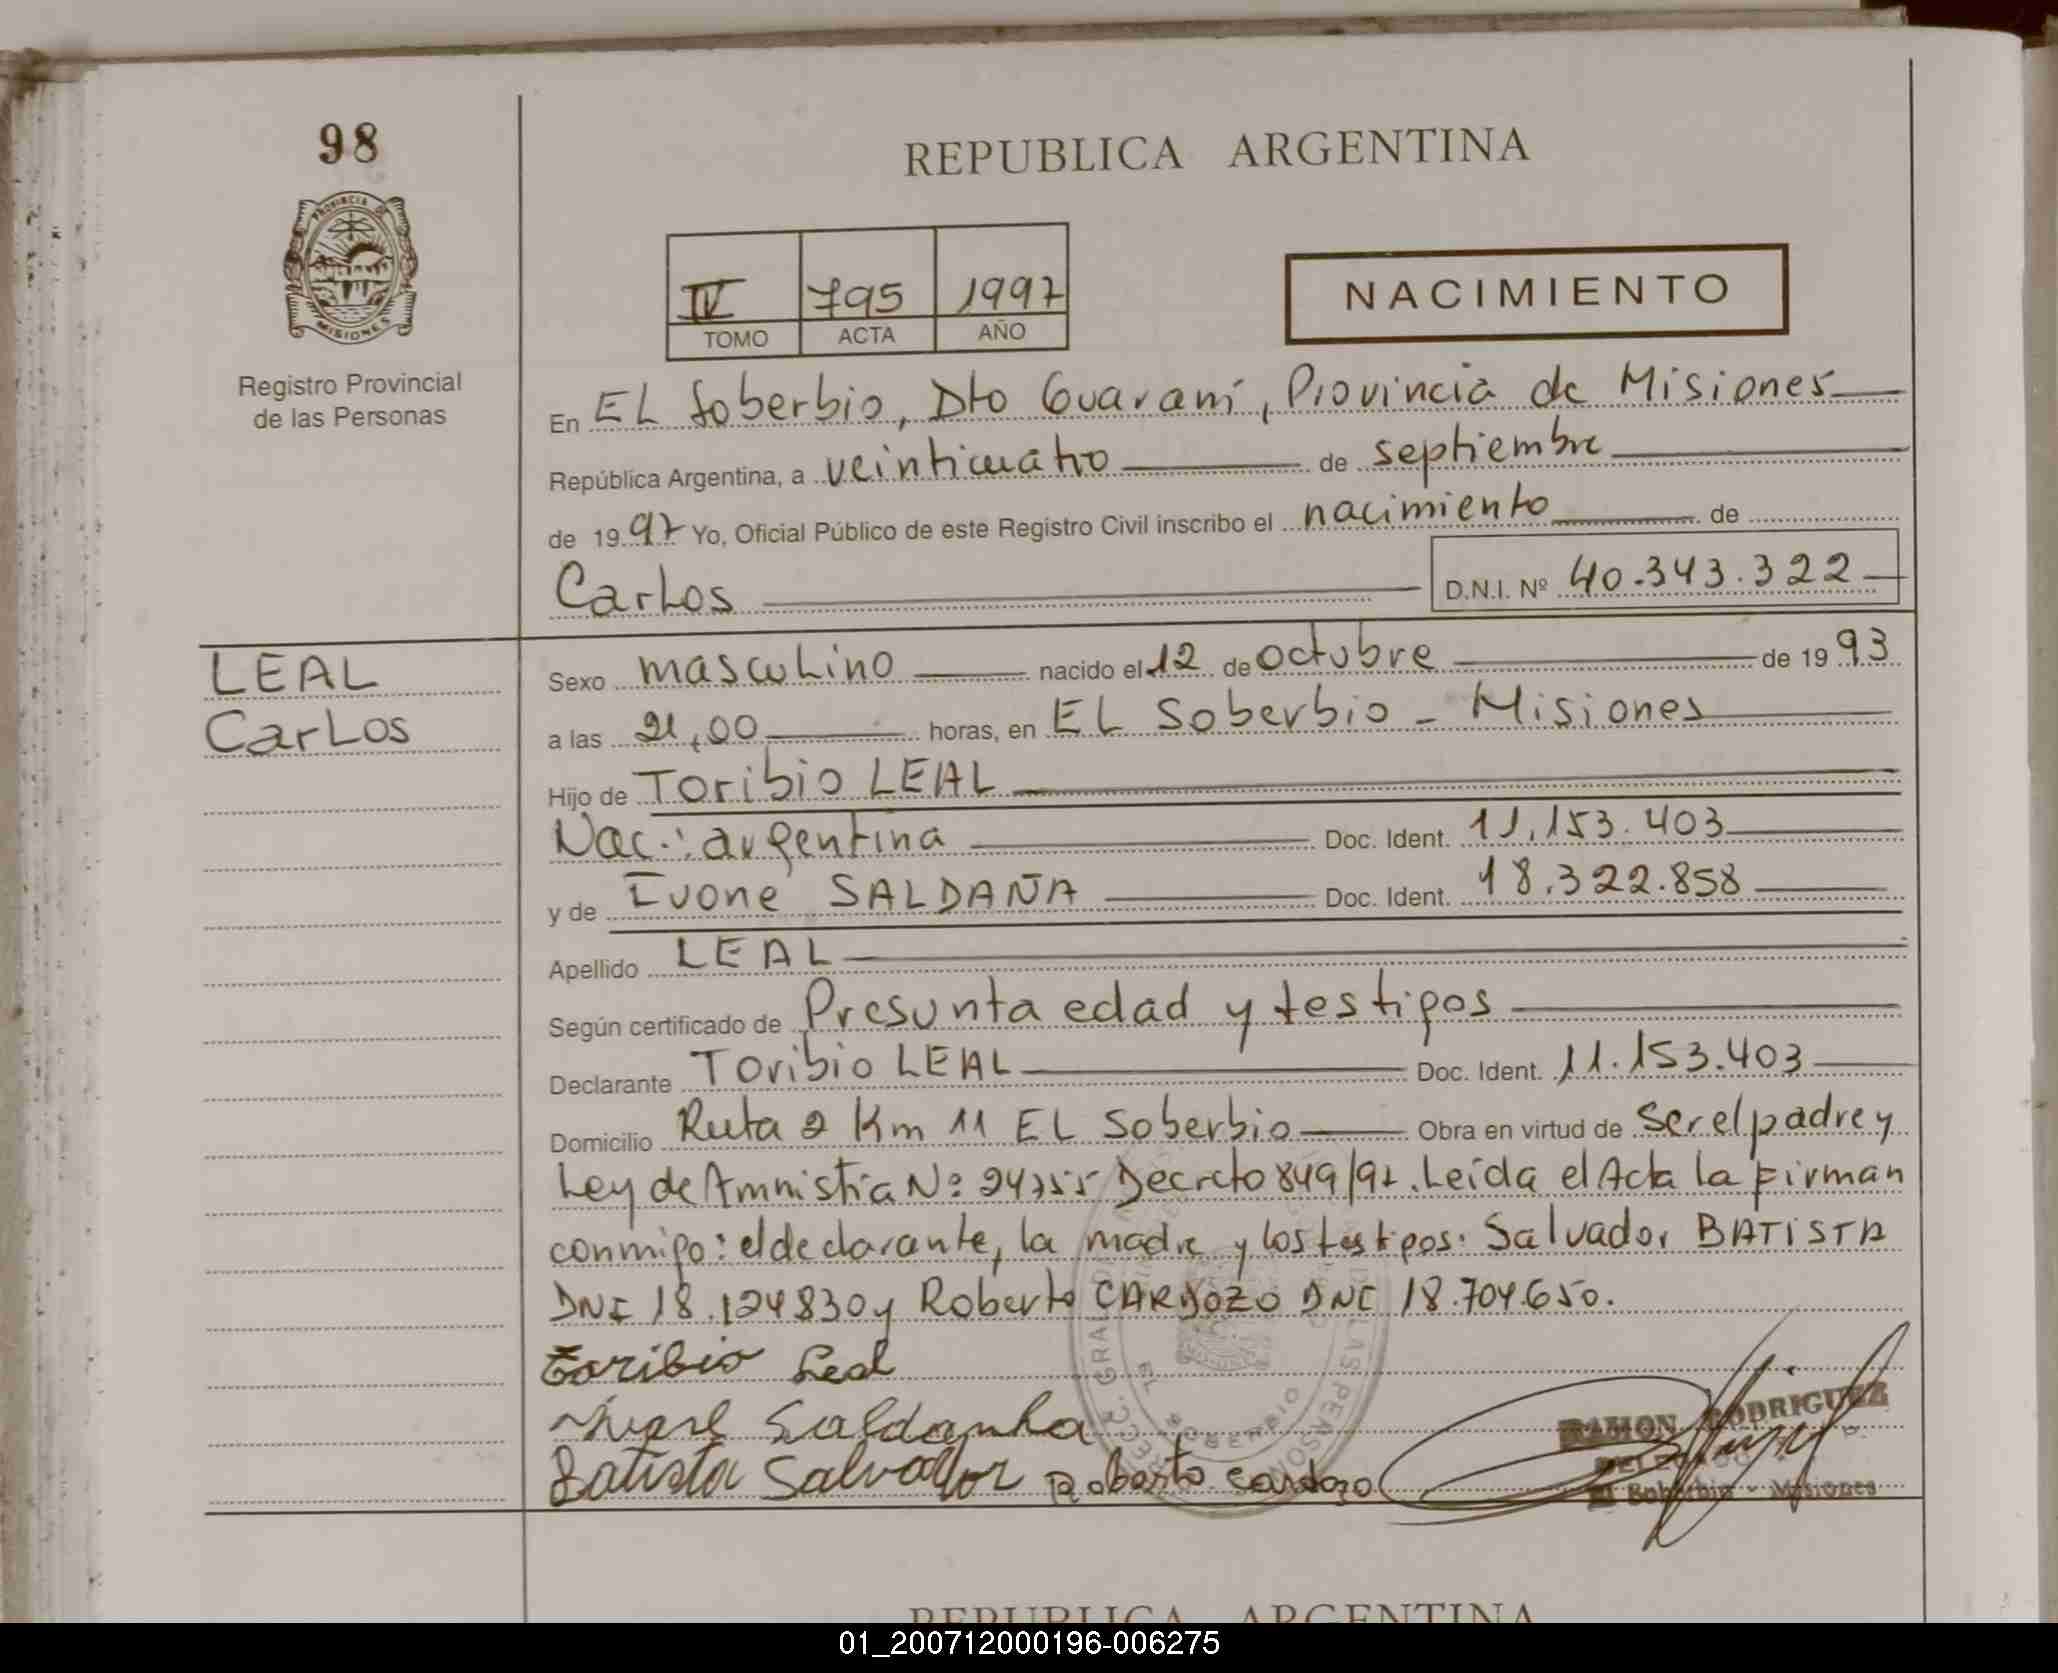 98
REPUBLICA ARGENTINA
PROVINCIA DE
MISIONES
Registro Provincial
de las Personas
IV 795 1997
TOMO ACTA AÑO
NACIMIENTO
En EL Soberbio, Dto Guaraní, Provincia de Misiones
República Argentina, a veinticuatro de septiembre
de 1997 Yo, Oficial Público de este Registro Civil inscribo el nacimiento de
Carlos D.N.I. Nº 40.343.322
LEAL
Carlos
Sexo masculino nacido el 12 de octubre de 1993
a las 21,00 horas, en EL Soberbio - Misiones
Hijo de Toribio LEAL
Nac.: argentina Doc. Ident. 11.153.403
y de Ivone SALDAÑA Doc. Ident. 18.322.858
Apellido LEAL
Según certificado de Presunta edad y testigos
Declarante Toribio LEAL Doc. Ident. 11.153.403
Domicilio Ruta 2 Km 11 EL Soberbio Obra en virtud de ser el padre y
Ley de Amnistia Nº 24755 Decreto 849/97. Leída el Acta la Firman
conmigo: el declarante, la madre y los testigos: Salvador BATISTA
DNI 18.124830 y Roberto CARDOZO DNI 18.704.650.
Toribio Leal
Saldanha
Batista Salvador Roberto Cardozo
RAMON RODRIGUEZ
DELEGADO
El Soberbio - Misiones
EL SOBERBIO
REPUBLICA ARGENTINA
01_200712000196-006275